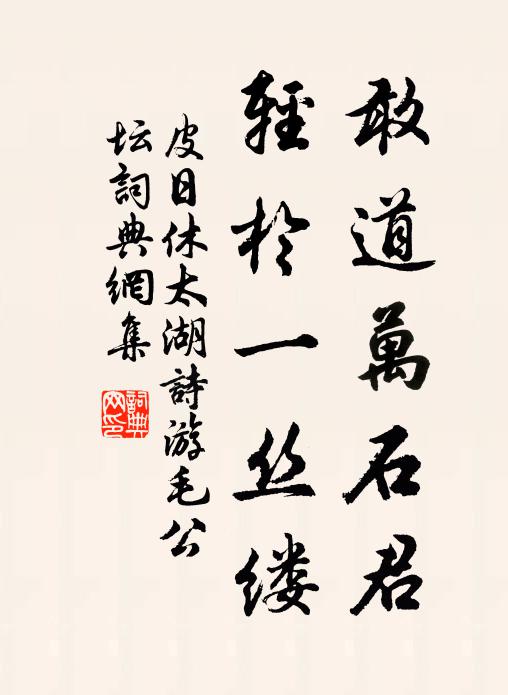 敢道萬石君
輕於一丝缕
皮日休太湖詩游毛公
坛詞典網集
詞典
网印